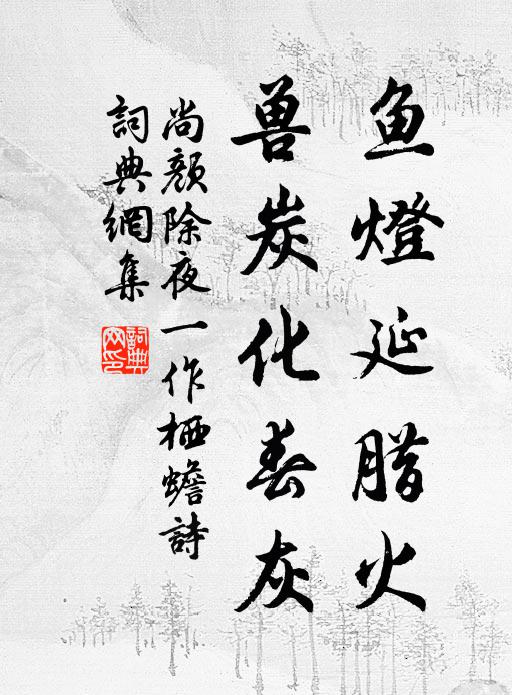 鱼燈延腊火
兽炭化春灰
尚颜除夜一作栖蟾詩
詞典網集
詞典网印